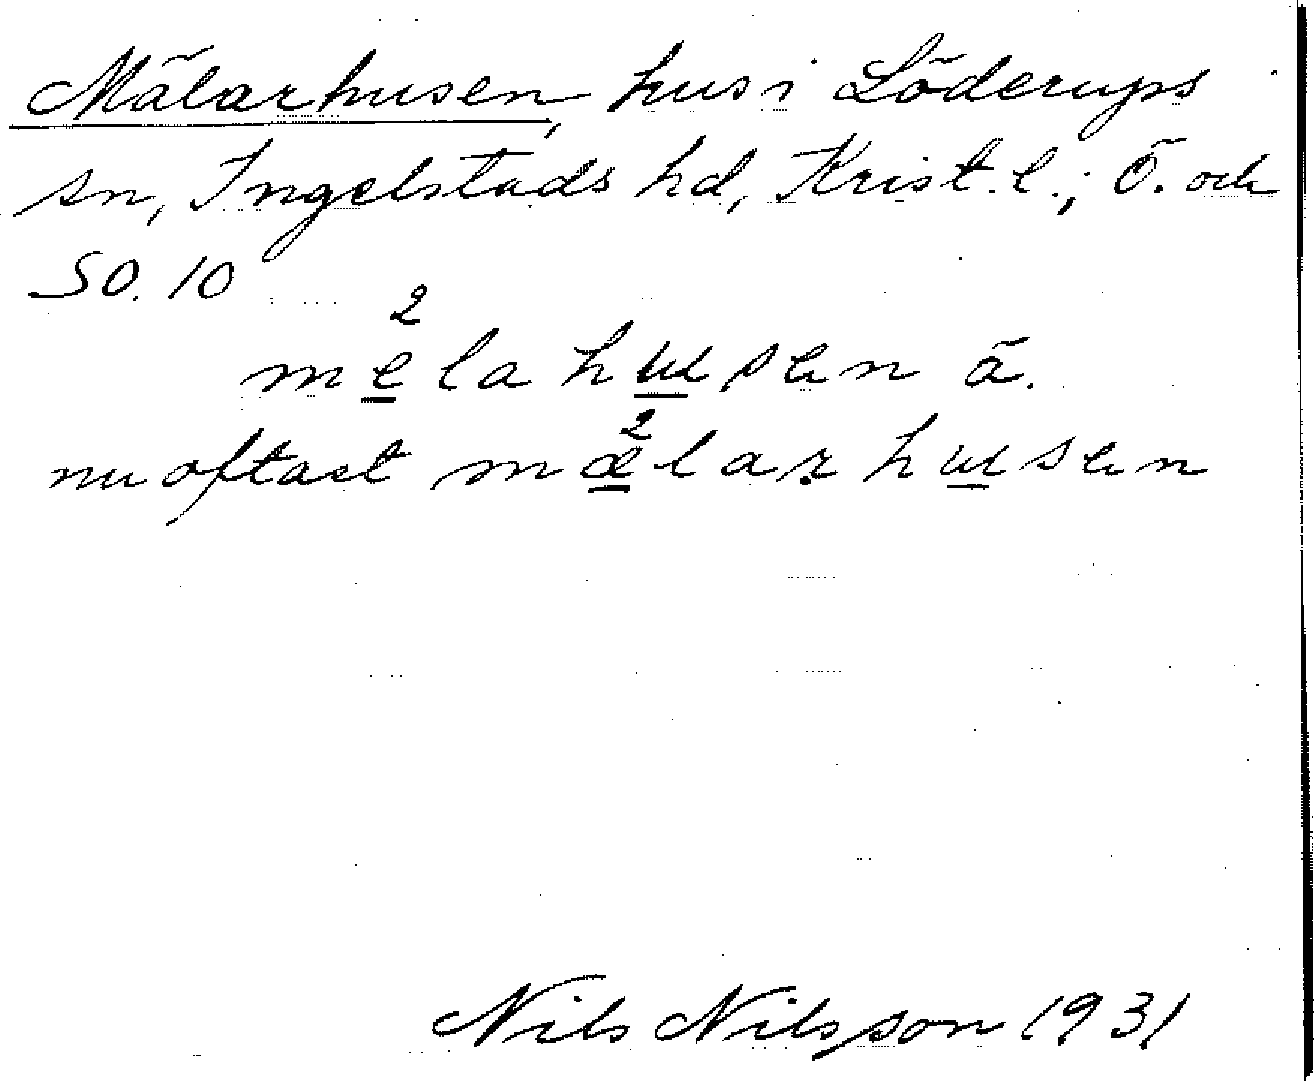 Mälarhusen, hus i Löderups
sn, Ingelstads hd, Krist. l.; Ö. och
SO. 10
2
mela husen ä.
nu oftast mä2lar husen
Nils Nilsson 1931